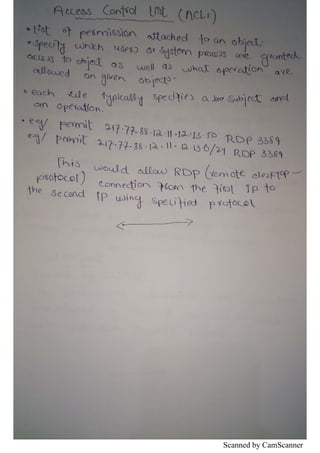 Access Control List (ACLs)
• list of permission attached to an object.
• Specify which users or system process are granted
access to object as well as what operation are
allowed on given objects.
• each rule typically specifies a subject and
an operation.
• eg/ permit 217.77.88.12.11.12.13.50 RDP 3389
eg/ permit 217.77.88.12.11.12.13.0/24 RDP 3389
This would allow RDP (remote desktop
protocol) connection from the first IP to
the second IP using specified protocol
Scanned by CamScanner